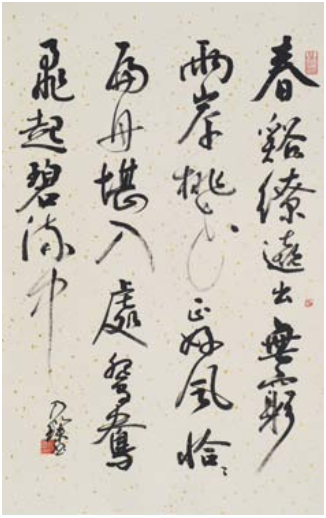 春谿繚遶出無窮
兩岸桃花正好風恰是
扁舟堪入處鴛鴦
飛起碧流中